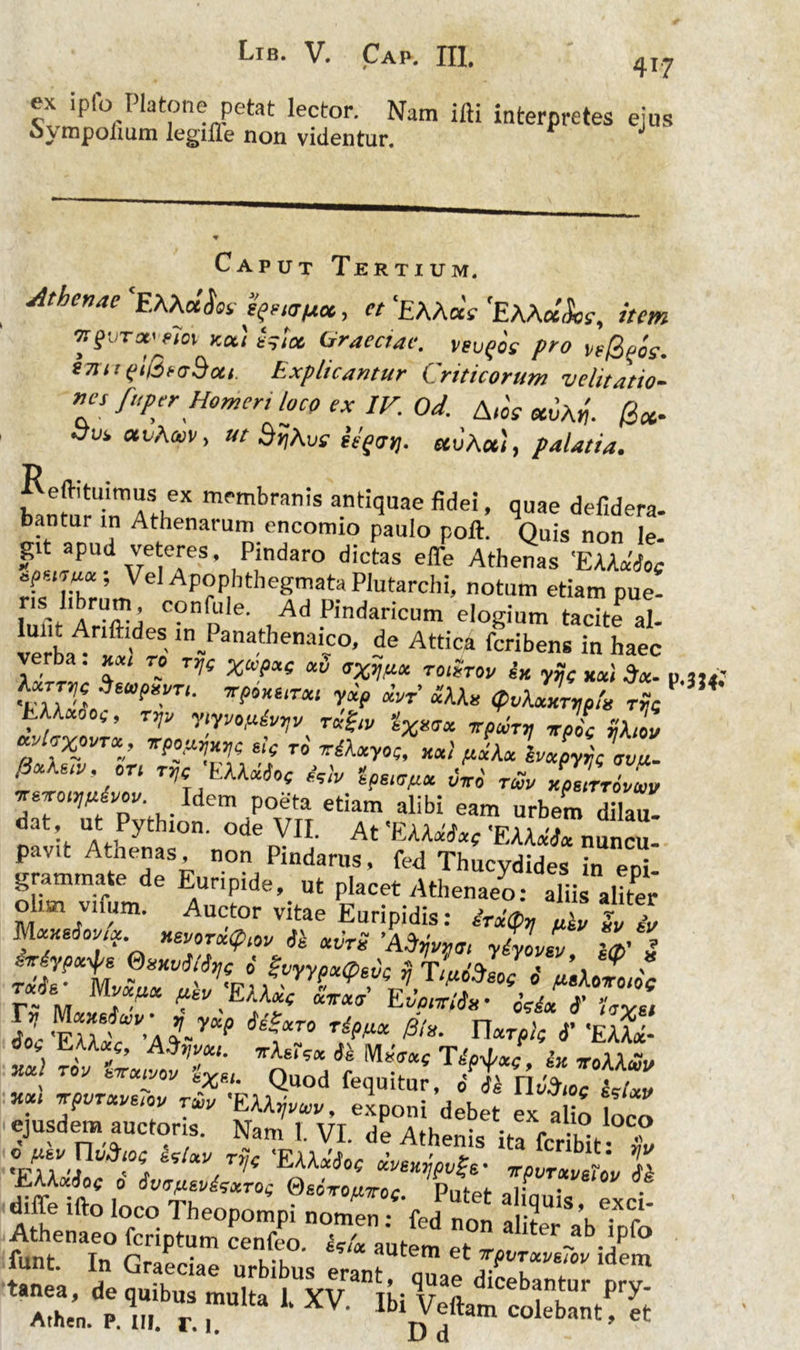 LIB. V. CAP. III.
417
ex ipſo Platone petat lector. Nam iſti interpretes ejus
Sympoſium legiſſe non videntur.
CAPUT TERTIUM.
Athenae Ἑλλάδος ἔρεισμα, et Ἑλλὰς Ἑλλάδος, item
πρυτανεῖον καὶ ἑστία Graeciae. νευρὸς pro νεβρός.
ἐπιτρίβεσθαι. Explicantur Criticorum velitatio-
nes ſuper Homeri loco ex IV. Od. Διὸς αὐλή. βα-
θὺς αὐλῶν, ut θῆλυς ἐέρση. αὐλαὶ, palatia.
Reſtituimus ex membranis antiquae fidei, quae deſidera-
bantur in Athenarum encomio paulo poſt. Quis non le-
git apud veteres, Pindaro dictas eſſe Athenas Ἑλλάδος
ἔρεισμα; Vel Apophthegmata Plutarchi, notum etiam pue-
ris librum, conſule. Ad Pindaricum elogium tacite al-
luſit Ariſtides in Panathenaico, de Attica ſcribens in haec
verba: καὶ τὸ τῆς χώρας αὖ σχῆμα τοιοῦτον ἐκ γῆς καὶ θα-
λάττης θεωροῦντι. πρόκειται γὰρ ἀντ’ ἄλλου φυλακτηρίου τῆς
p. 314.
Ἑλλάδος, τὴν γιγνομένην τάξιν ἔχουσα πρώτη πρὸς ἥλιον
ἀνίσχοντα, προμήκης εἰς τὸ πέλαγος, καὶ μάλα ἐναργὴς συμ-
βαλεῖν, ὅτι τῆς Ἑλλάδος ἐστὶν ἔρεισμα ὑπὸ τῶν κρειττόνων
πεποιημένον. Idem poëta etiam alibi eam urbem dilau-
dat, ut Pythion. ode VII. At Ἑλλάδας Ἑλλάδα nuncu-
pavit Athenas, non Pindarus, ſed Thucydides in epi-
grammate de Euripide, ut placet Athenaeo: aliis aliter
olim viſum. Auctor vitae Euripidis: ἐτάφη μὲν οὖν ἐν
Μακεδονίᾳ. κενοτάφιον δὲ αὐτοῦ Ἀθήνησι γέγονεν, ἐφ’ ᾧ
ἐπέγραψε Θουκυδίδης ὁ ξυγγραφεὺς ἢ Τιμόθεος ὁ μελοποιὸς
τάδε· Μνᾶμα μὲν Ἑλλὰς ἅπασ’ Εὐριπίδου· ὀστέα δ’ ἴσχει
Γῆ Μακεδών· ᾗ γὰρ δέξατο τέρμα βίου. Πατρὶς δ’ Ἑλλά-
δος Ἑλλὰς, Ἀθῆναι. πλεῖστα δὲ Μούσας Τέρψας, ἐκ πολλῶν
καὶ τὸν ἔπαινον ἔχει. Quod ſequitur, ὁ δὲ Πύθιος ἑστίαν
καὶ πρυτανεῖον τῶν Ἑλλήνων, exponi debet ex alio loco
ejusdem auctoris. Nam l. VI. de Athenis ita ſcribit: ἣν
ὁ μὲν Πύθιος ἑστίαν τῆς Ἑλλάδος ἀνεκήρυξε· πρυτανεῖον δὲ
Ἑλλάδος ὁ δυσμενέστατος Θεόπομπος. Putet aliquis, exci-
diſſe iſto loco Theopompi nomen: ſed non aliter ab ipſo
Athenaeo ſcriptum cenſeo. ἑστία autem et πρυτανεῖον idem
ſunt. In Graeciae urbibus erant, quae dicebantur pry-
tanea, de quibus multa l. XV. Ibi Veſtam colebant, et
Athen. P. III. T. I.
D d